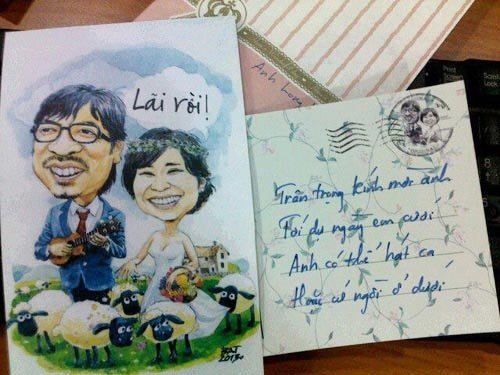 Lãi rồi!
Anh Long
Trân trọng kính mời anh
Tới dự ngày em cưới
Anh có thể hát ca
Hoặc cứ ngồi ở dưới
Print
Screen
Scroll
Lock